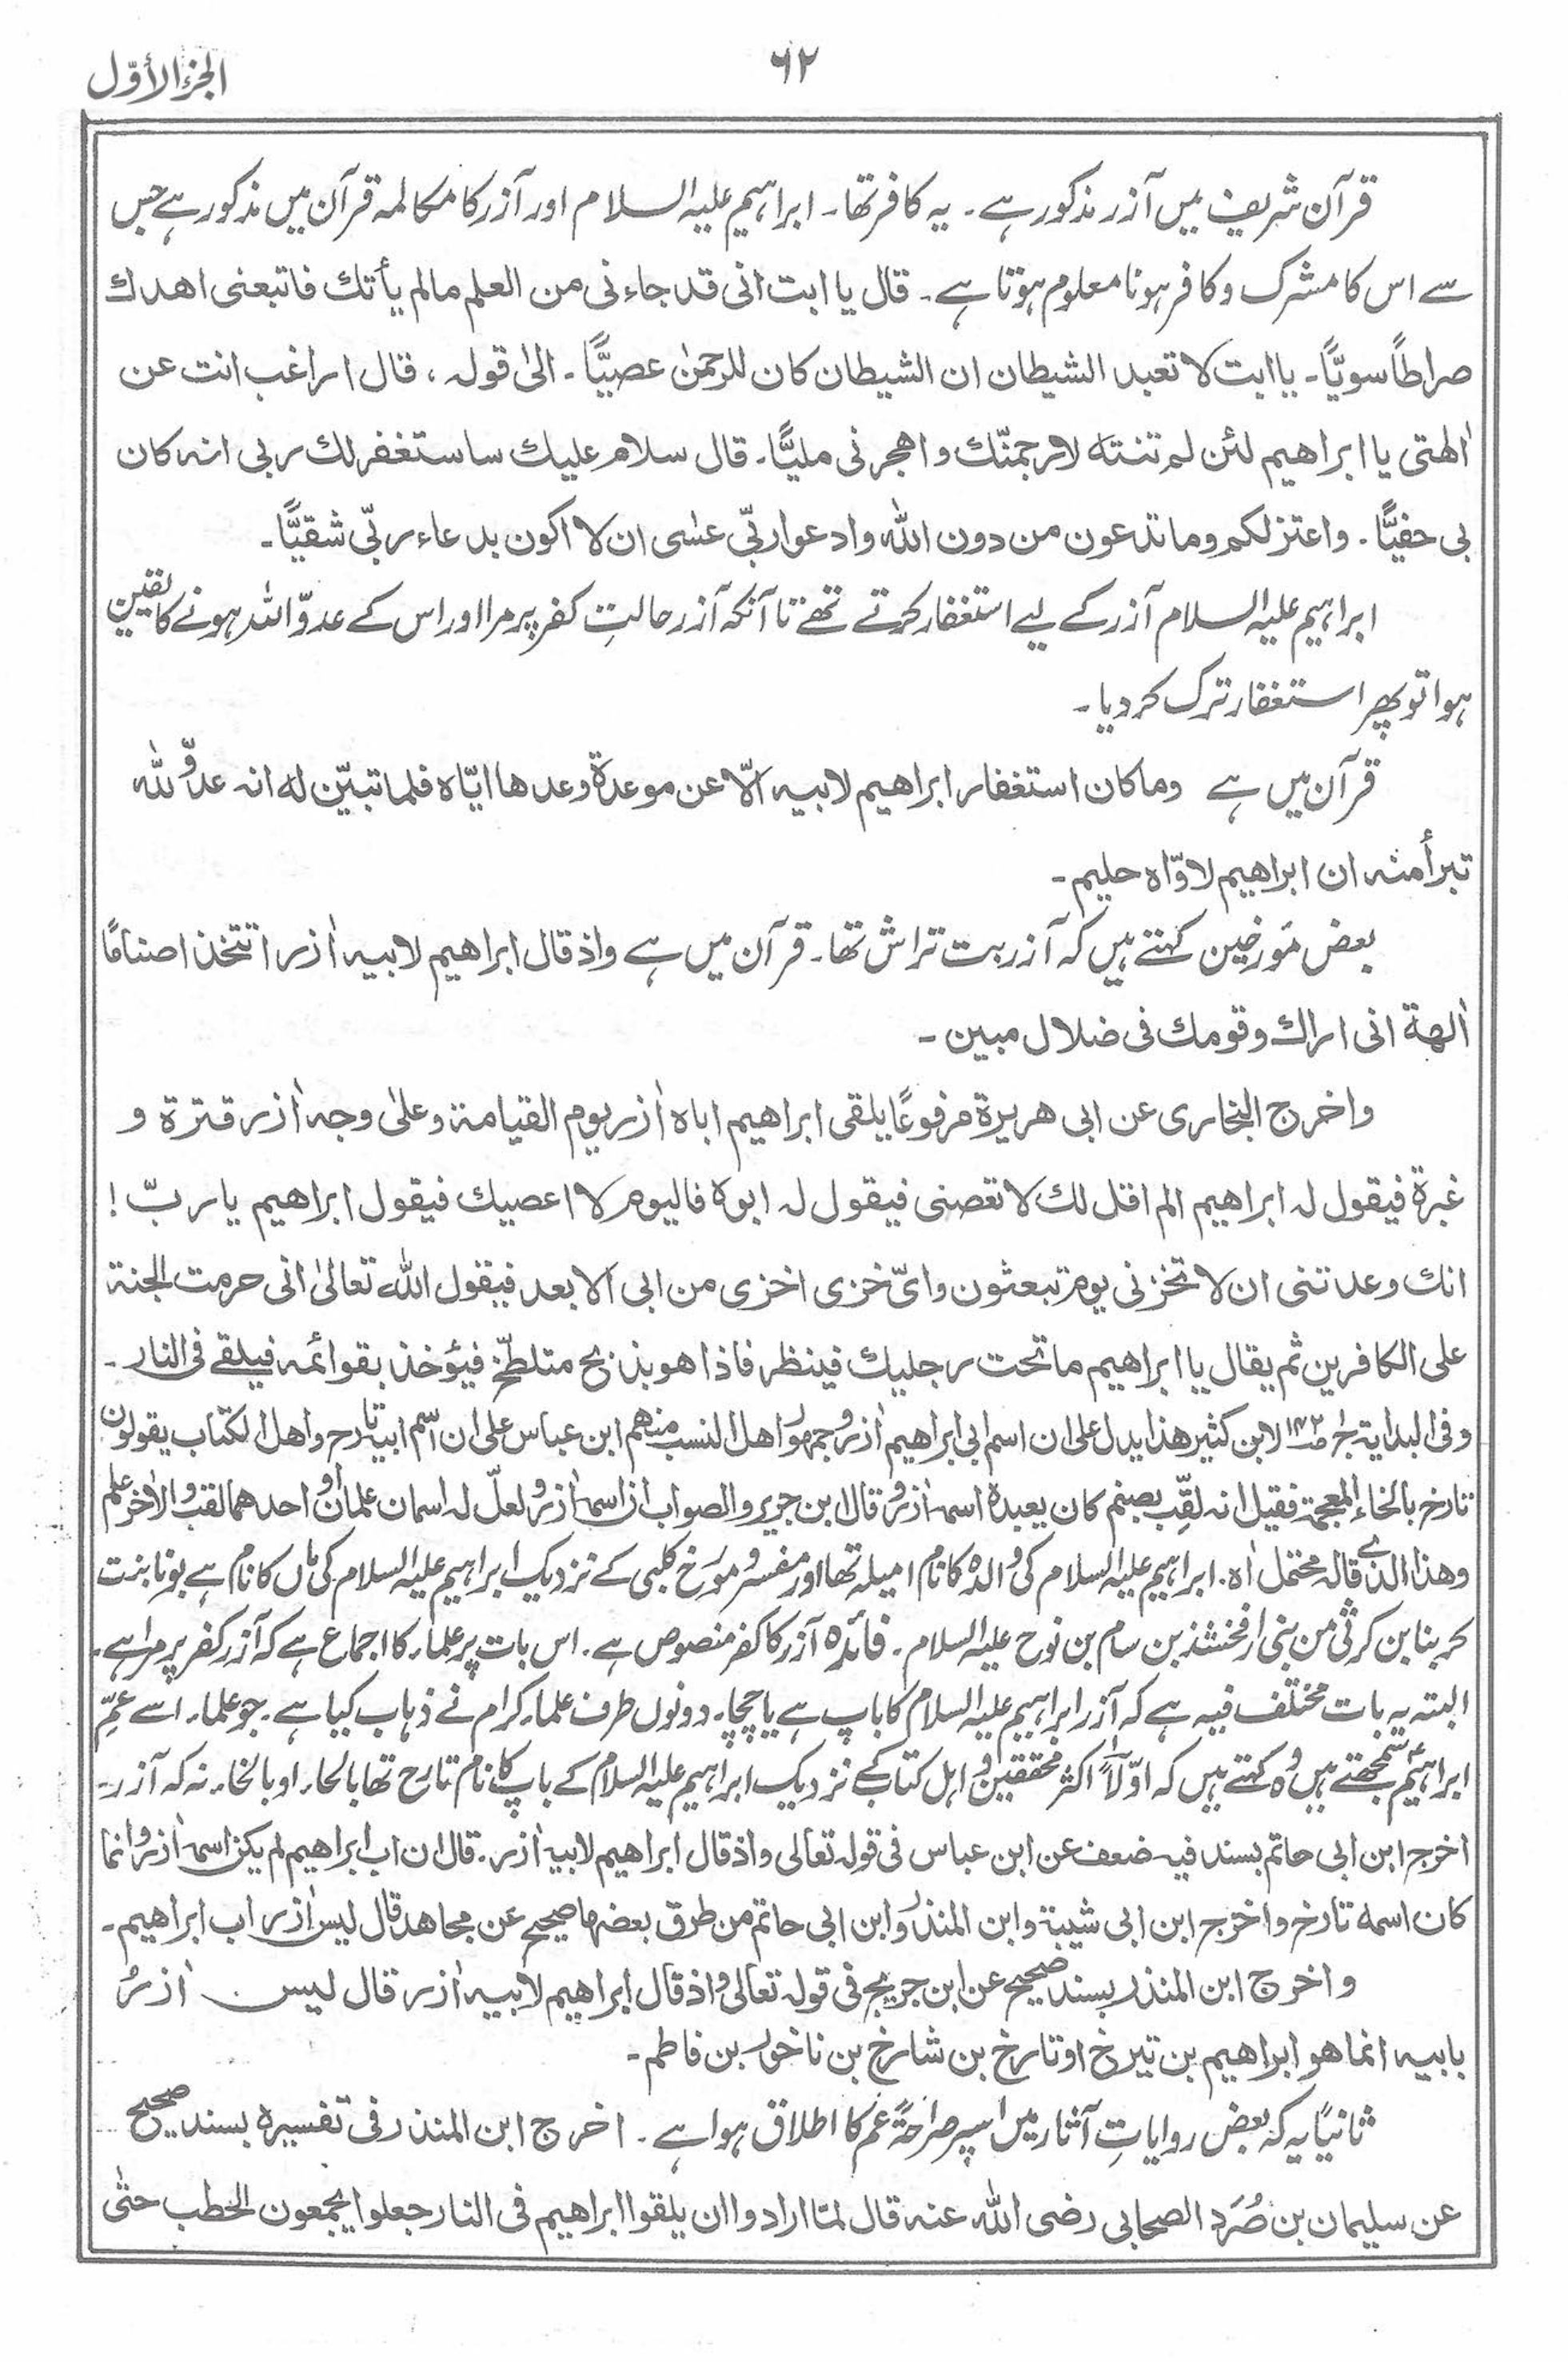 ۶۲
الجزء الأوّل
قرآن شریف میں آزر مذکور ہے۔ یہ کافر تھا۔ ابراہیم علیہ السلام اور آزر کا مکالمہ قرآن میں مذکور ہے جس
سے اس کا مشرک و کافر ہونا معلوم ہوتا ہے۔ قال یا ابت انی قد جاءنی من العلم مالم یأتك فاتبعنی اھدك
صراطاً سویًّا۔ یا ابت لا تعبد الشیطان ان الشیطان کان للرحمٰن عصیًّا۔ الیٰ قولہ ، قال اراغب انت عن
اٰلھتی یا ابراھیم لئن لم تنتہ لارجمنّك واھجرنی ملیًّا۔ قال سلام علیك ساستغفرلك ربی انہ کان
بی حفیًّا۔ واعتزلکم وما تدعون من دون اللہ وادعوا ربّی عسٰی ان لا اکون بدعاء ربّی شقیًّا۔
ابراہیم علیہ السلام آزر کے لیے استغفار کرتے تھے تا آنکہ آزر حالتِ کفر پر مرا اور اس کے عدوّ اللہ ہونے کا یقین
ہوا تو پھر استغفار ترک کر دیا۔
قرآن میں ہے وما کان استغفار ابراھیم لابیہ الّا عن موعدة وعدھا ایّاہ فلما تبیّن لہ انہ عدوٌّ للہ
تبرأ منہ ان ابراھیم لاوّاہ حلیم۔
بعض مؤرخین کہتے ہیں کہ آزر بت تراش تھا۔ قرآن میں ہے واذ قال ابراھیم لابیہ اٰزر اتتخذ اصنامًا
اٰلھة انی اراك وقومك فی ضلال مبین۔
واخرج البخاری عن ابی ھریرة مرفوعًا یلقی ابراھیم اباہ اٰزر یوم القیامة وعلیٰ وجہ اٰزر قترة و
غبرة فیقول لہ ابراھیم الم اقل لك لا تعصنی فیقول لہ ابوہ فالیوم لا اعصیك فیقول ابراھیم یا ربّ !
انك وعدتنی ان لا تخزنی یوم تبعثون وایّ خزی اخزی من ابی الابعد فیقول اللہ تعالیٰ انی حرمت الجنة
علی الکافرین ثم یقال یا ابراھیم ما تحت رجلیك فینظر فاذا ھو بذبح متلطّخ فیؤخذ بقوائمہ فیلقے فی النار۔
وفی البدایة ج۱ ص۱۴۲ لابن کثیر ھذا یدل علی ان اسم ابی ابراھیم اٰزر و جمہور اھل النسب منہم ابن عباس علی ان اسم ابیہ تارح واھل الکتاب یقولون
تارخ بالخاء المعجمة فقیل انہ لقّب بصنم کان یعبدہ اسمہ اٰزر و قال ابن جریر والصواب ان اسمہ اٰزر و لعلّ لہ اسمان علمان او احدھما لقب والاٰخر علم
وھذا الذی قالہ محتمل اہ۔ ابراہیم علیہ السلام کی والدہ کا نام امیلہ تھا اور مفسر و مؤرخ کلبی کے نزدیک ابراہیم علیہ السلام کی ماں کا نام ہے بونا بنت
کربنا بن کرثی من بنی ارفخشذ بن سام بن نوح علیہ السلام۔ فائدہ آزر کا کفر منصوص ہے۔ اس بات پر علماء کا اجماع ہے کہ آزر کفر پر مرا ہے۔
البتہ یہ بات مختلف فیہ ہے کہ آزر ابراہیم علیہ السلام کا باپ ہے یا چچا۔ دونوں طرف علماء کرام نے ذہاب کیا ہے۔ جو علماء اسے عمِّ
ابراہیم سمجھتے ہیں وہ کہتے ہیں کہ اوّلاً اکثر محققین و اہل کتاب کے نزدیک ابراہیم علیہ السلام کے باپ کا نام تارح تھا بالحاء او بالخاء نہ کہ آزر۔
اخرج ابن ابی حاتم بسند فیہ ضعف عن ابن عباس فی قولہ تعالی واذ قال ابراھیم لابیہ اٰزر۔ قال ان اب ابراھیم لم یکن اسمہ اٰزر وانما
کان اسمہ تارخ واخرج ابن ابی شیبة وابن المنذر وابن ابی حاتم من طرق بعضہا صحیح عن مجاھد قال لیس اٰزر اب ابراھیم۔
واخرج ابن المنذر بسند صحیح عن ابن جریج فی قولہ تعالی واذ قال ابراھیم لابیہ اٰزر قال لیس اٰزرُ
بابیہ انما ھو ابراھیم بن تیرخ او تارخ بن شارخ بن ناخور بن فاطم۔
ثانیًا یہ کہ بعض روایاتِ آثار میں اسپر صراحةً عم کا اطلاق ہوا ہے۔ اخرج ابن المنذر فی تفسیرہ بسند صحیح
عن سلیمان بن صُرَد الصحابی رضی اللہ عنہ قال لمّا ارادوا ان یلقوا ابراھیم فی النار جعلوا یجمعون الحطب حتّٰی